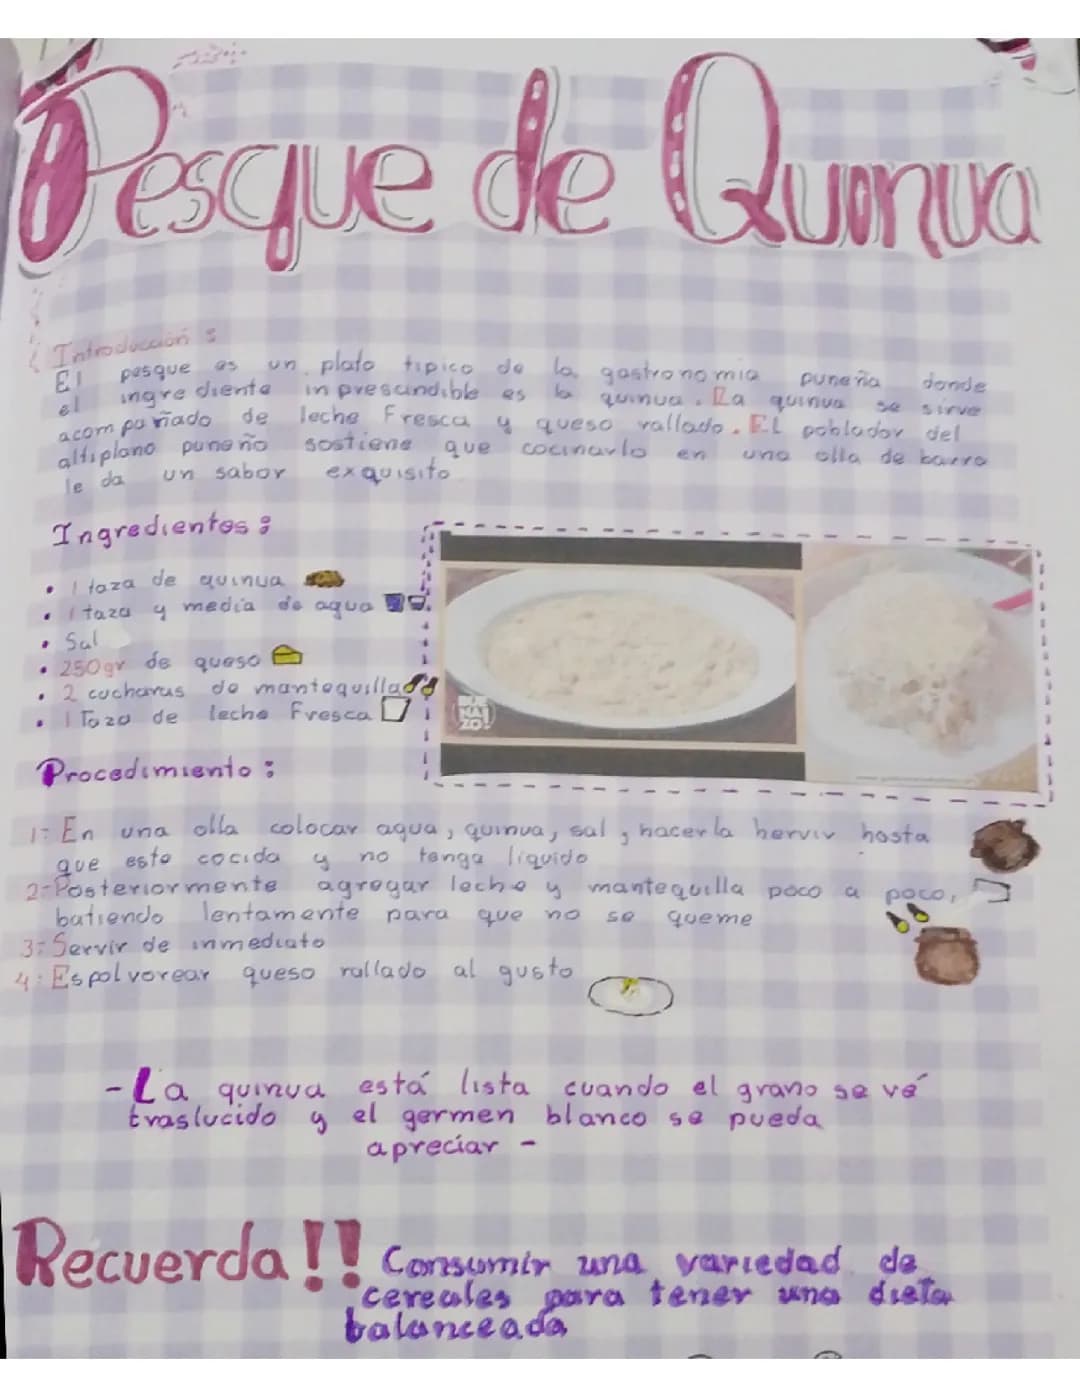 Pesque de Quinua
Introducción:
El pesque es un plato tipico de la gastronomia puneña donde
el ingrediente inprescindible es la quinua. La quinua se sirve
acompañado de leche Fresca y queso rallado. El poblador del
altiplano puneño sostiene que cocinarlo en una olla de barro
le da un sabor exquisito
Ingredientes:
• 1 taza de quinua
• 1 taza y media de agua
• Sal
• 250gr de queso
• 2 cucharas de mantequilla
• 1 Taza de leche Fresca
Procedimiento:
1- En una olla colocar agua, quinua, sal, hacerla hervir hasta
que este cocida y no tenga líquido
2- Posteriormente agregar leche y mantequilla poco a poco,
batiendo lentamente para que no se queme
3- Servir de inmediato
4- Espolvorear queso rallado al gusto
- La quinua está lista cuando el grano se vé
traslucido y el germen blanco se pueda
apreciar -
Recuerda!! Consumir una variedad de
cereales para tener una dieta
balanceada